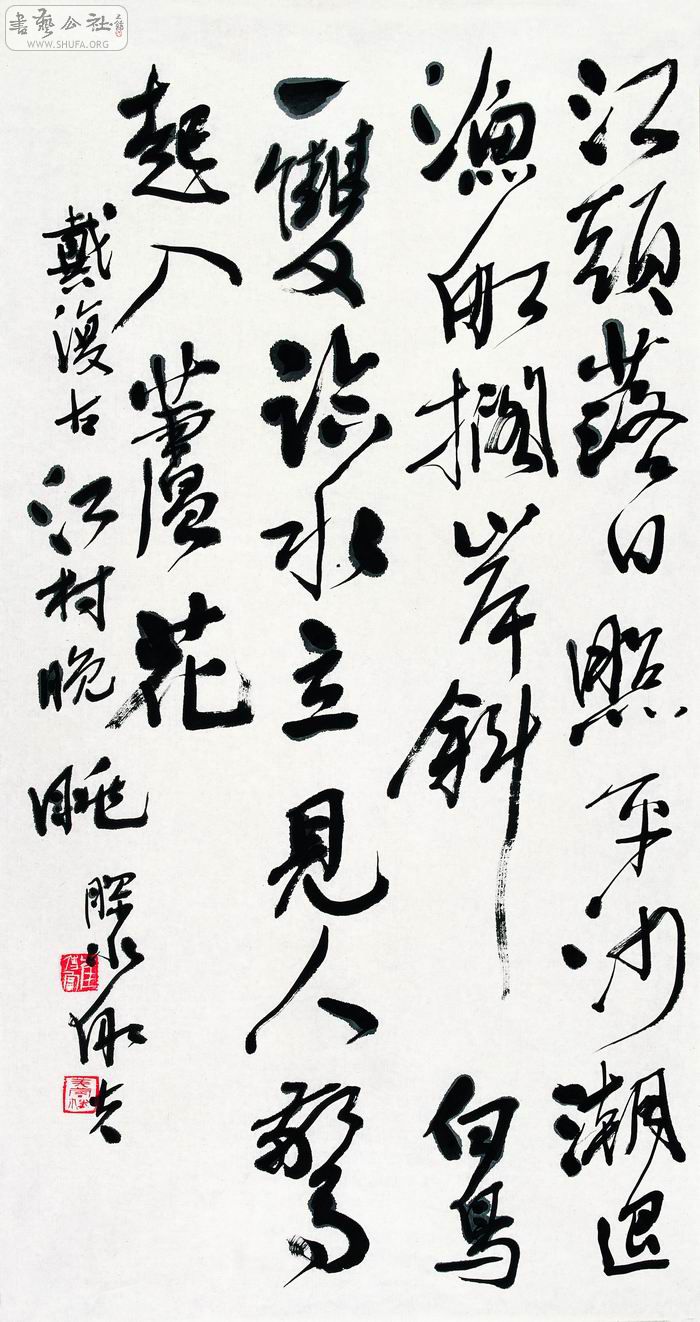 江頭落日照平沙潮退
漁船擱岸斜白鳥
一雙臨水立見人驚
起入蘆花
戴復古江村晚眺
書藝公社
WWW.SHUFA.ORG